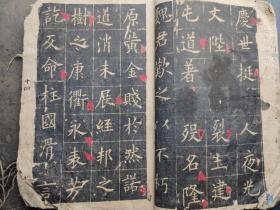 慶世挺人夜光
文陛裂土建
屯道著歿名隆
君歎之以不朽
原賁金賤於然諾
道消未展經邦之
樹之康衢永表芳
訖反命柱國滑言
十四